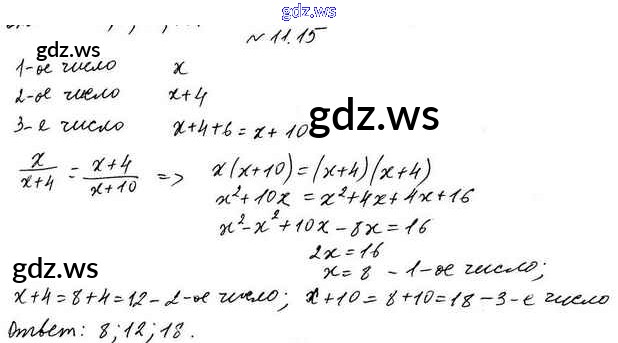 gdz.ws
№ 11.15
gdz.ws
1-ое число x
2-ое число x+4
gdz.ws
3-е число x+4+6=x+10
x/(x+4) = (x+4)/(x+10) => x(x+10)=(x+4)(x+4)
x²+10x = x²+4x+4x+16
x²-x²+10x-8x=16
2x=16
gdz.ws
x=8 - 1-ое число;
x+4=8+4=12-2-ое число; x+10=8+10=18-3-е число
Ответ: 8; 12; 18.
gdz.ws